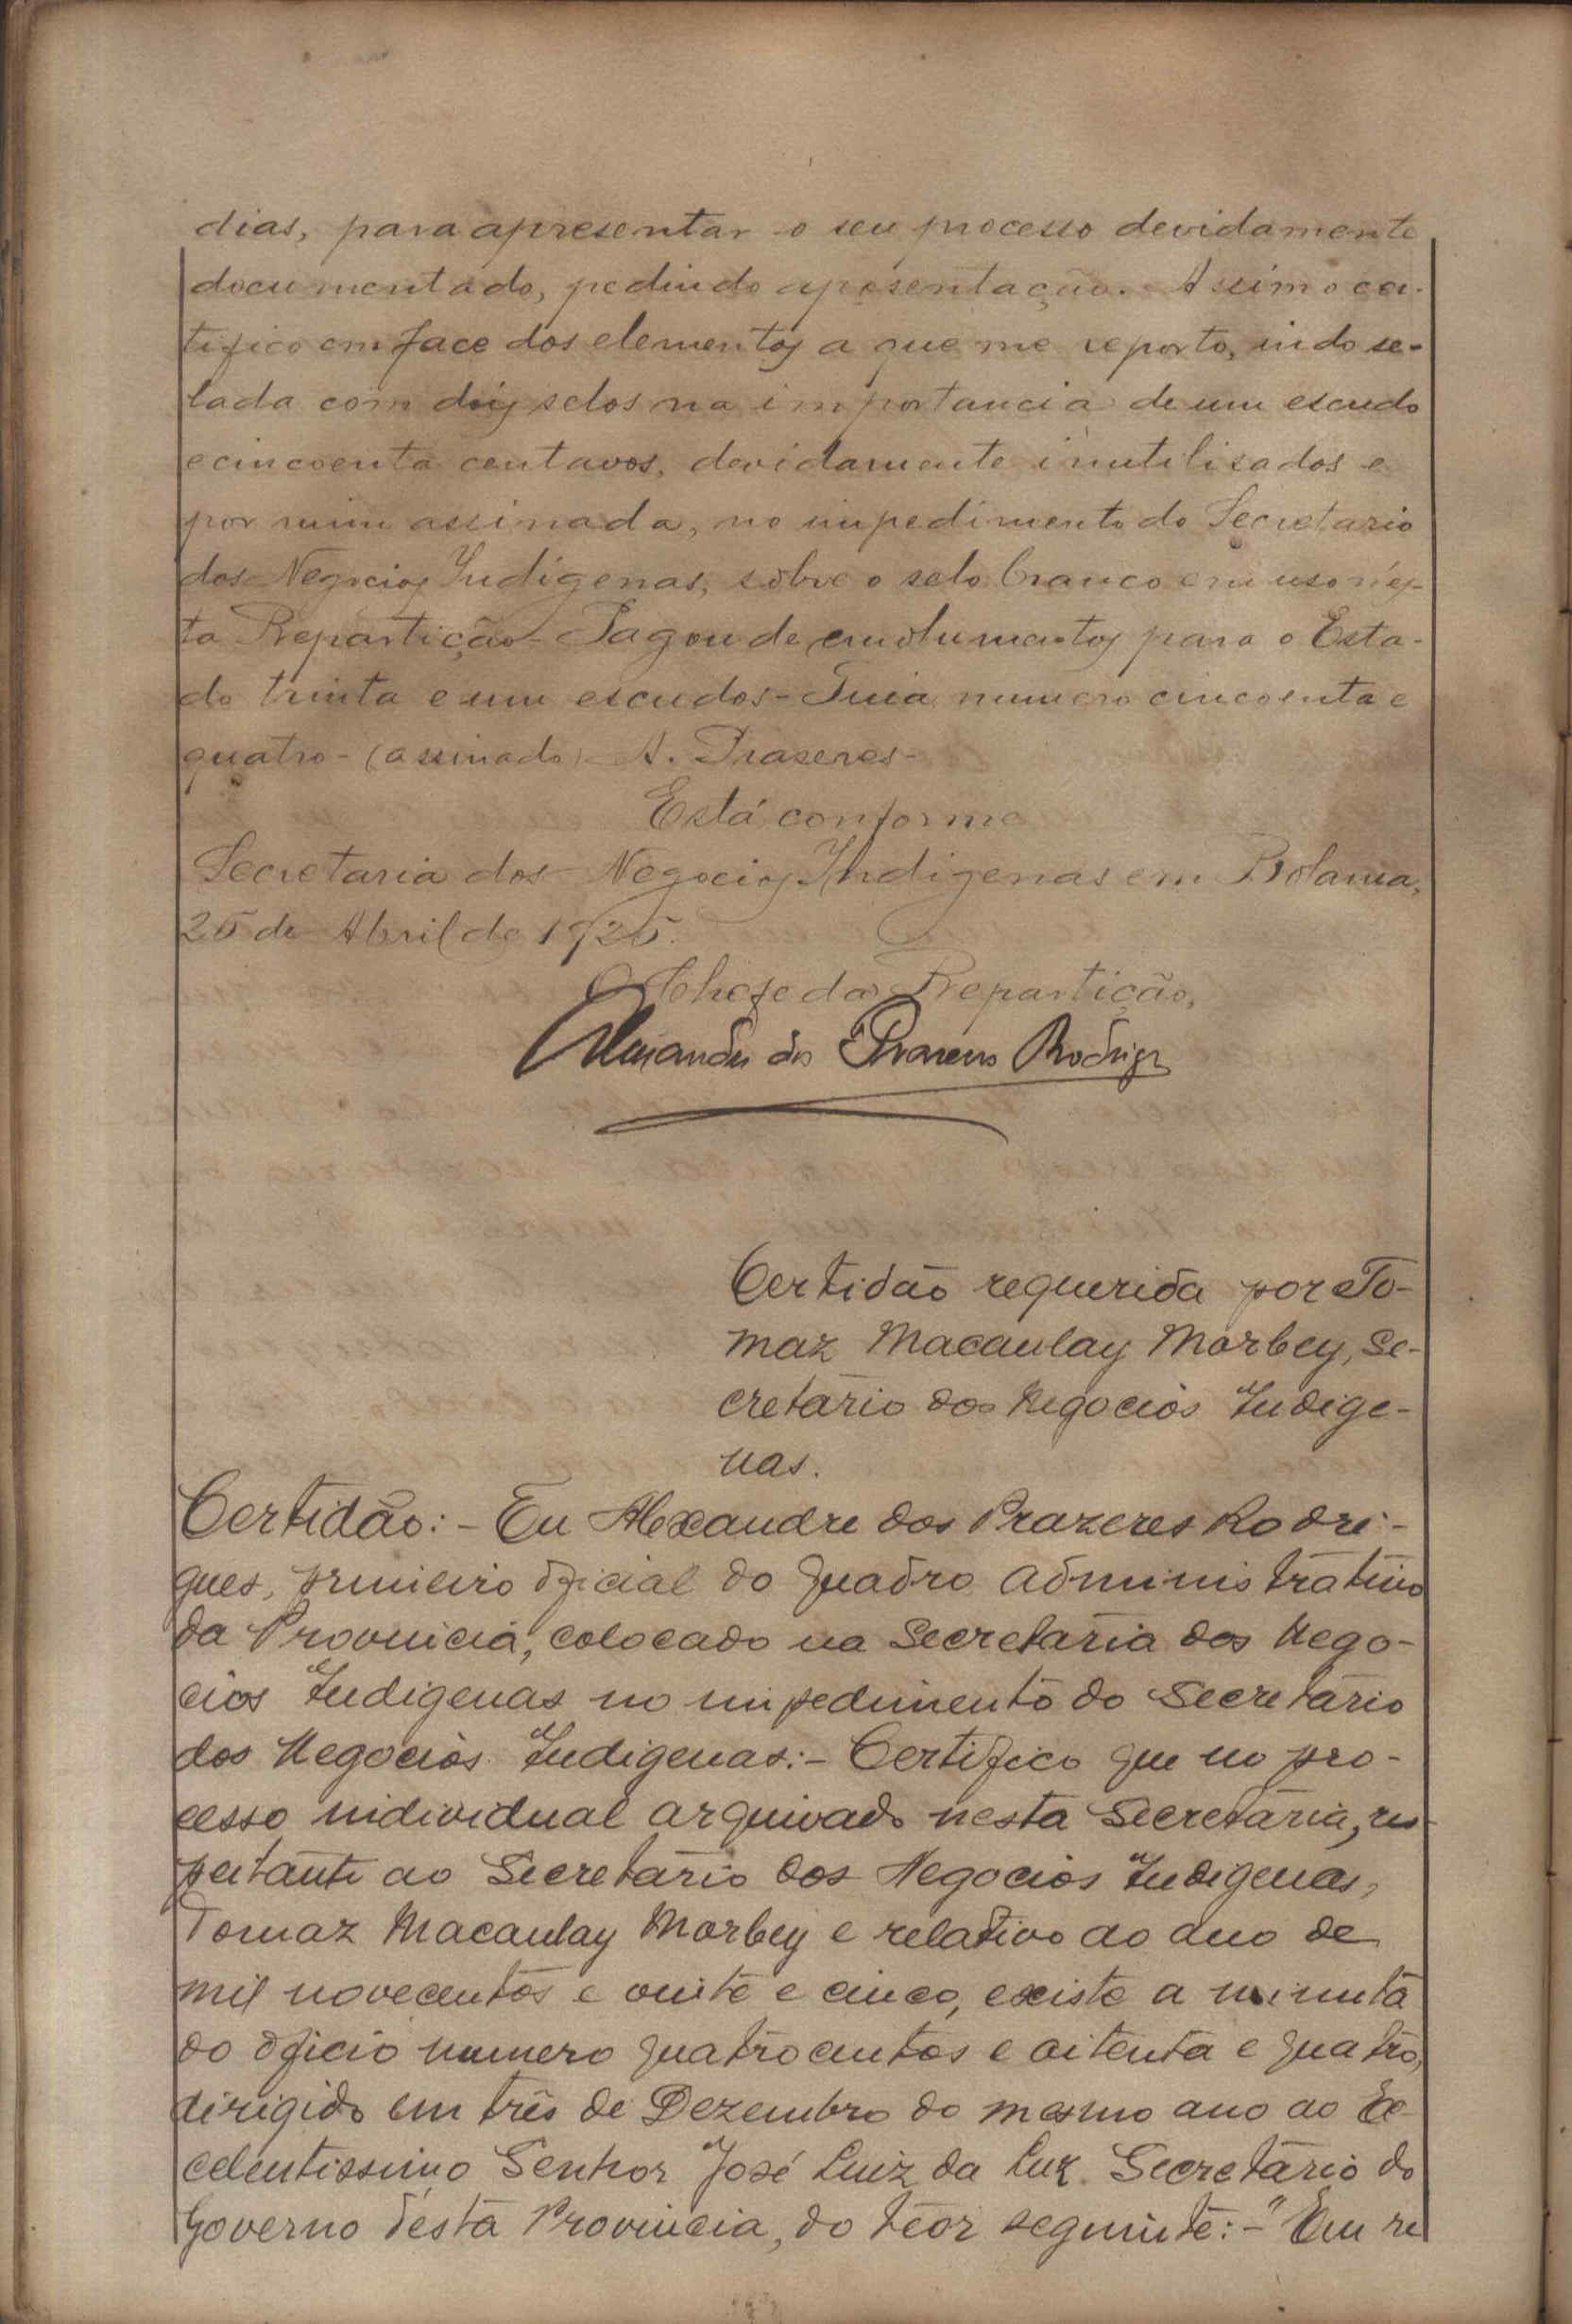 dias, para apresentar o seu processo devidamente
documentado, pedindo aposentação. Assim o cer-
tifico em face dos elementos a que me reporto, indo se-
lada com dois selos na importancia de um escudo
e cincoenta centavos, devidamente inutilisados e
por mim assinada, no impedimento do Secretario
dos Negocios Indigenas, sôbre o selo branco em uso nes-
ta Repartição - Pagou de emolumentos para o Esta-
do trinta e um escudos - Guia numero cincoenta e
quatro - (assinado) A. Praseres -
Está conforme
Secretaria dos Negocios Indigenas em Bolama,
25 de Abril de 1925.
O Chefe da Repartição,
Alexandre dos Prazeres Rodrigues
Certidão requerida por To-
maz Macaulay Morbey, Se-
cretário dos Negocios Indige-
nas.
Certidão: - Eu Alexandre dos Prazeres Rodri-
gues, primeiro oficial do quadro administrativo
da Provincia, colocado na Secretaria dos Nego-
cios Indigenas no impedimento do Secretário
dos Negocios Indigenas: - Certifico que no pro-
cesso individual arquivado nesta Secretaria, res-
peitante ao Secretário dos Negocios Indigenas,
Tomaz Macaulay Morbey e relativo ao ano de
mil novecentos e vinte e cinco, existe a minuta
do oficio numero quatrocentos e oitenta e quatro,
dirigido em três de Dezembro do mesmo ano ao Ex-
celentissimo Senhor José Luiz da Luz Secretário do
Governo desta Provincia, do teor seguinte: - "Em re